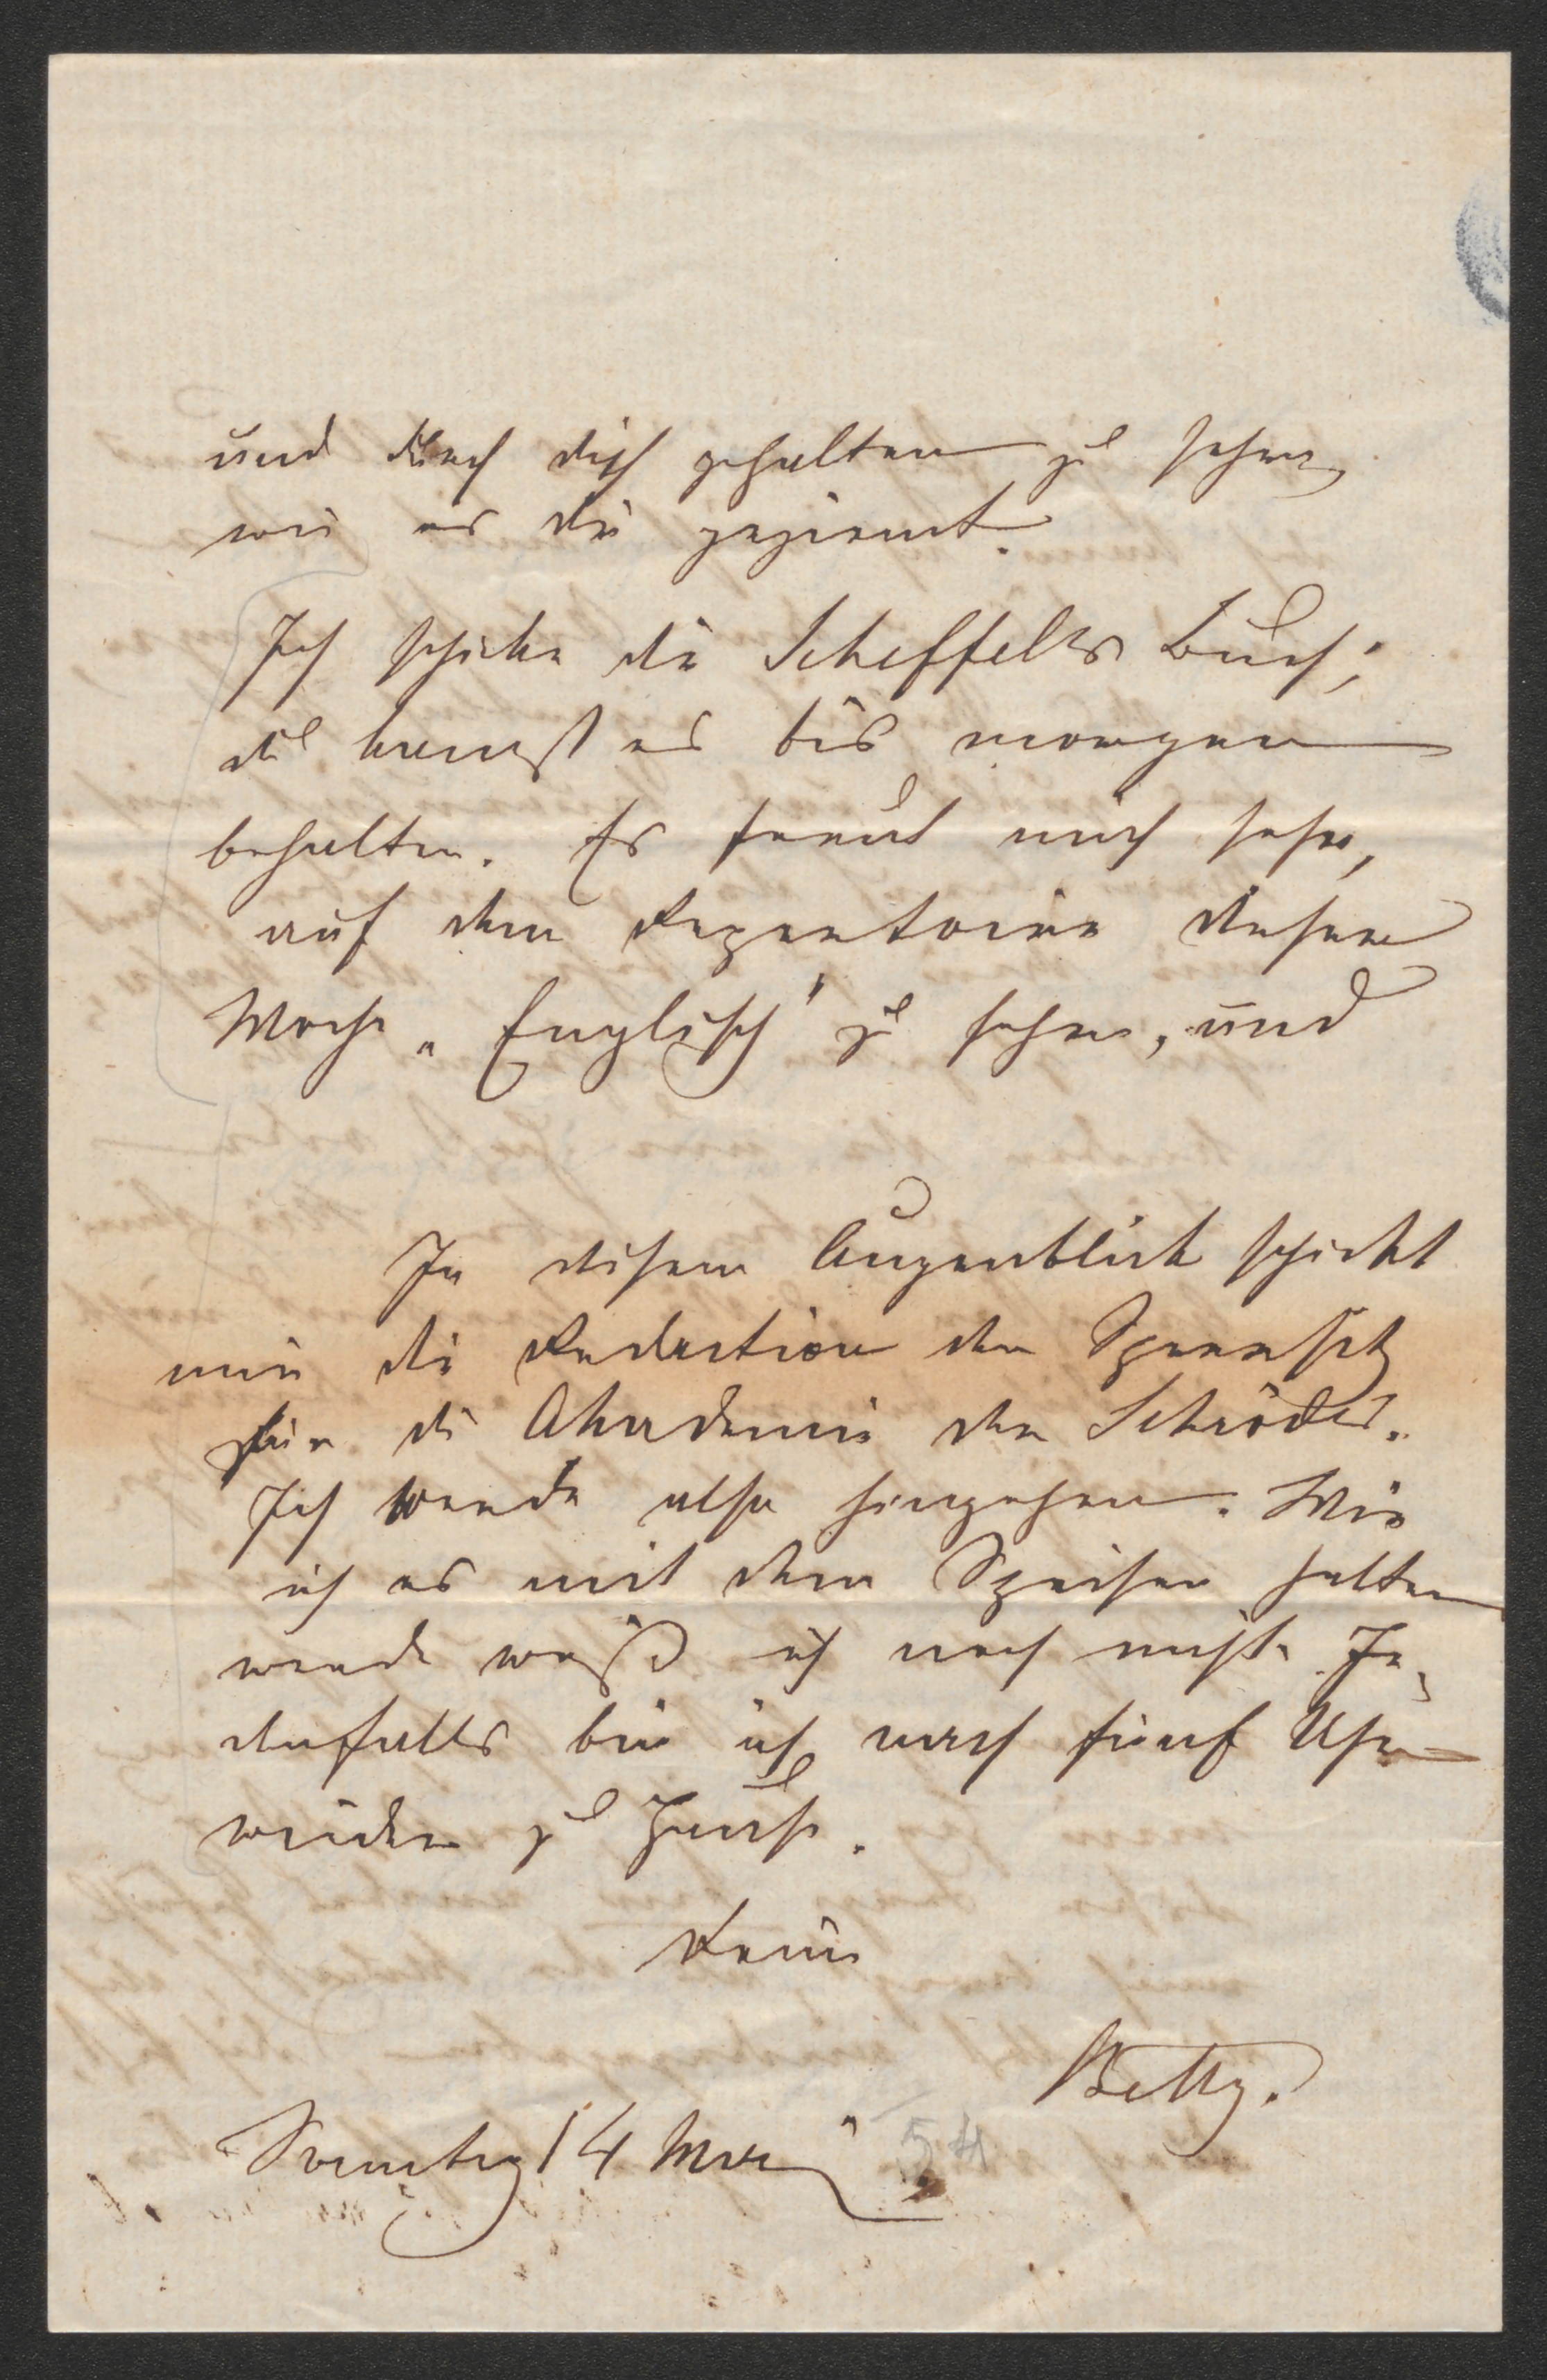 und durch dich gehalten zu sehen
wie es dir geziemt.
Ich schicke dir Scheffels Buch;
du kannst es bis morgen
behalten. Es freut mich sehr,
auf dem Repertoire dieser
Woche „Englisch" zu sehen, und
In diesem Augenblick schickt
mir die Redaction den Sperrsitz
für die Akademie der Schröder.
Ich werde also hingehen. Wie
ich es mit dem Speisen halten
werde weiß ich noch nicht. Je-
denfalls bin ich nach fünf Uhr
wieder zu Hause.
Deine
Betty.
Sonntag 14 Mai 54